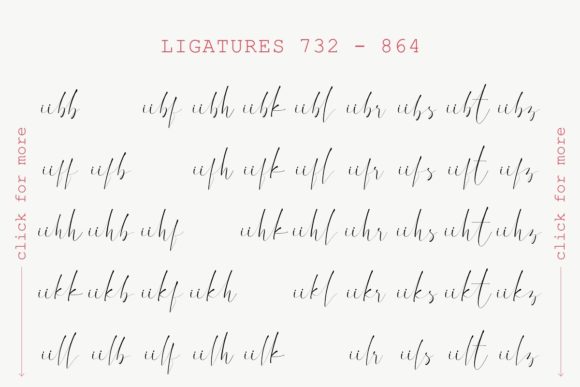 LIGATURES 732 - 864
iibb iibf iibh iibk iibl iibr iibs iibt iibz
iiff iifb iifh iifk iifl iifr iifs iift iifz
iihh iihb iihf iihk iihl iihr iihs iiht iihz
iikk iikb iikf iikh iikl iikr iiks iikt iikz
iill iilb iilf iilh iilk iilr iils iilt iilz
click for more
click for more